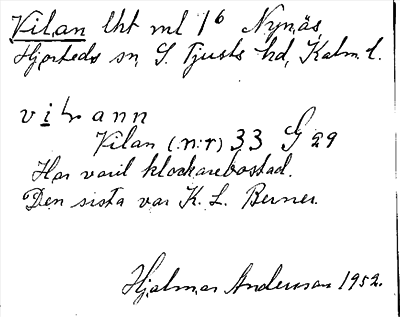 Vilan lht ml 1⁶ Nynäs,
Hjorteds sn, S. Tjusts hd, Kalm. l.
vi ann
Vilan (:n:r) 33 G 29
Har varit klockarebostad.
Den sista var K. L. Berner.
Hjalmar Andersson 1952.